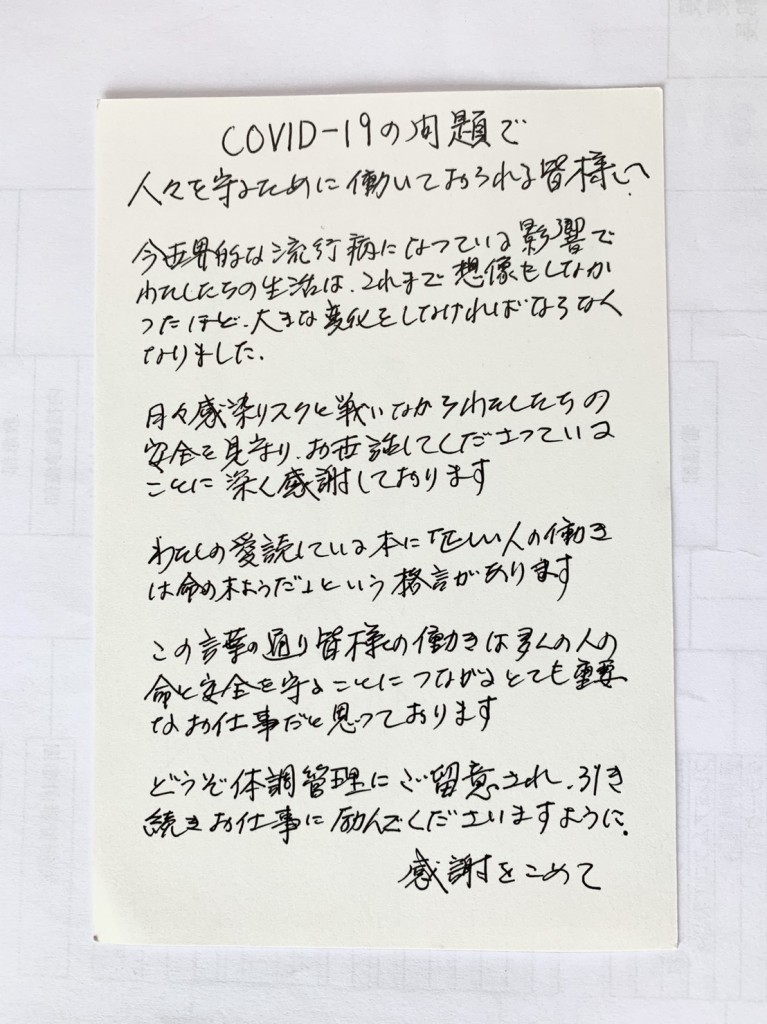 COVID-19の問題で
人々を守るために働いておられる皆様へ
今世界的な流行病になっている影響で
わたしたちの生活は、これまで想像もしなか
ったほど、大きな変化をしなければならなく
なりました.
日々感染リスクと戦いながらわたしたちの
安全を見守り、お世話してくださっている
ことに深く感謝しております
わたしの愛読している本に「正しい人の働き
は命の木ようだ」という格言があります
この言葉の通り皆様の働きは多くの人の
命と安全を守ることにつながるとても重要
なお仕事だと思っております
どうぞ体調管理にご留意され、引き
続きお仕事に励んでくださいますように.
感謝をこめて